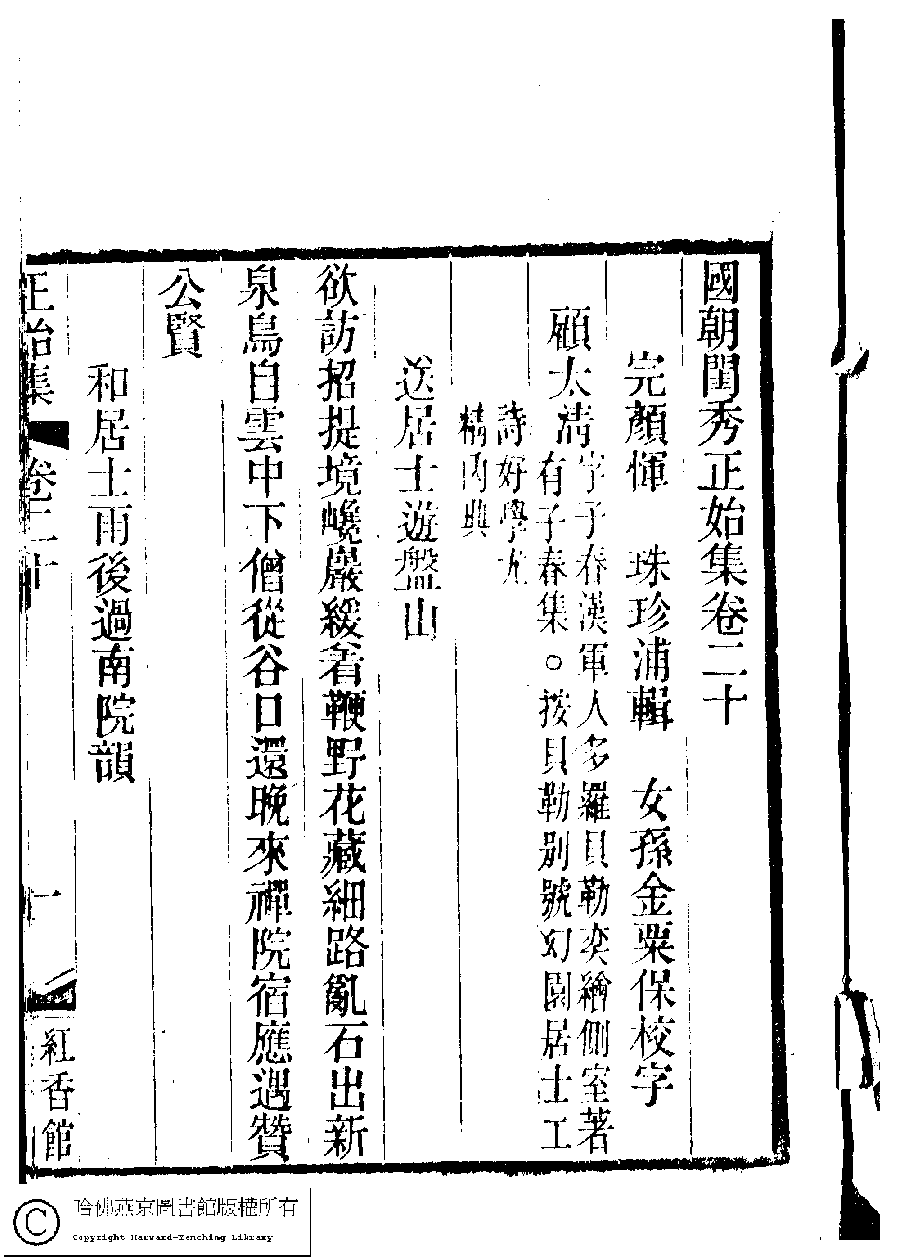 國朝閨秀正始集卷二十
完顏惲 珠珍浦輯 女孫金粟保校字
顧太清
字子春漢軍人多羅貝勒奕繪側室著
有子春集○按貝勒別號幻園居士工
詩好學尤
精內典
送居士遊盤山
欲訪招提境巉巖緩著鞭野花藏細路亂石出新
泉鳥自雲中下僧從谷口還晚來禪院宿應遇贊
公賢
和居士雨後過南院韻
正始集 卷二十 一 紅香館
哈佛燕京圖書館版權所有
Copyright Harvard-Yenching Library